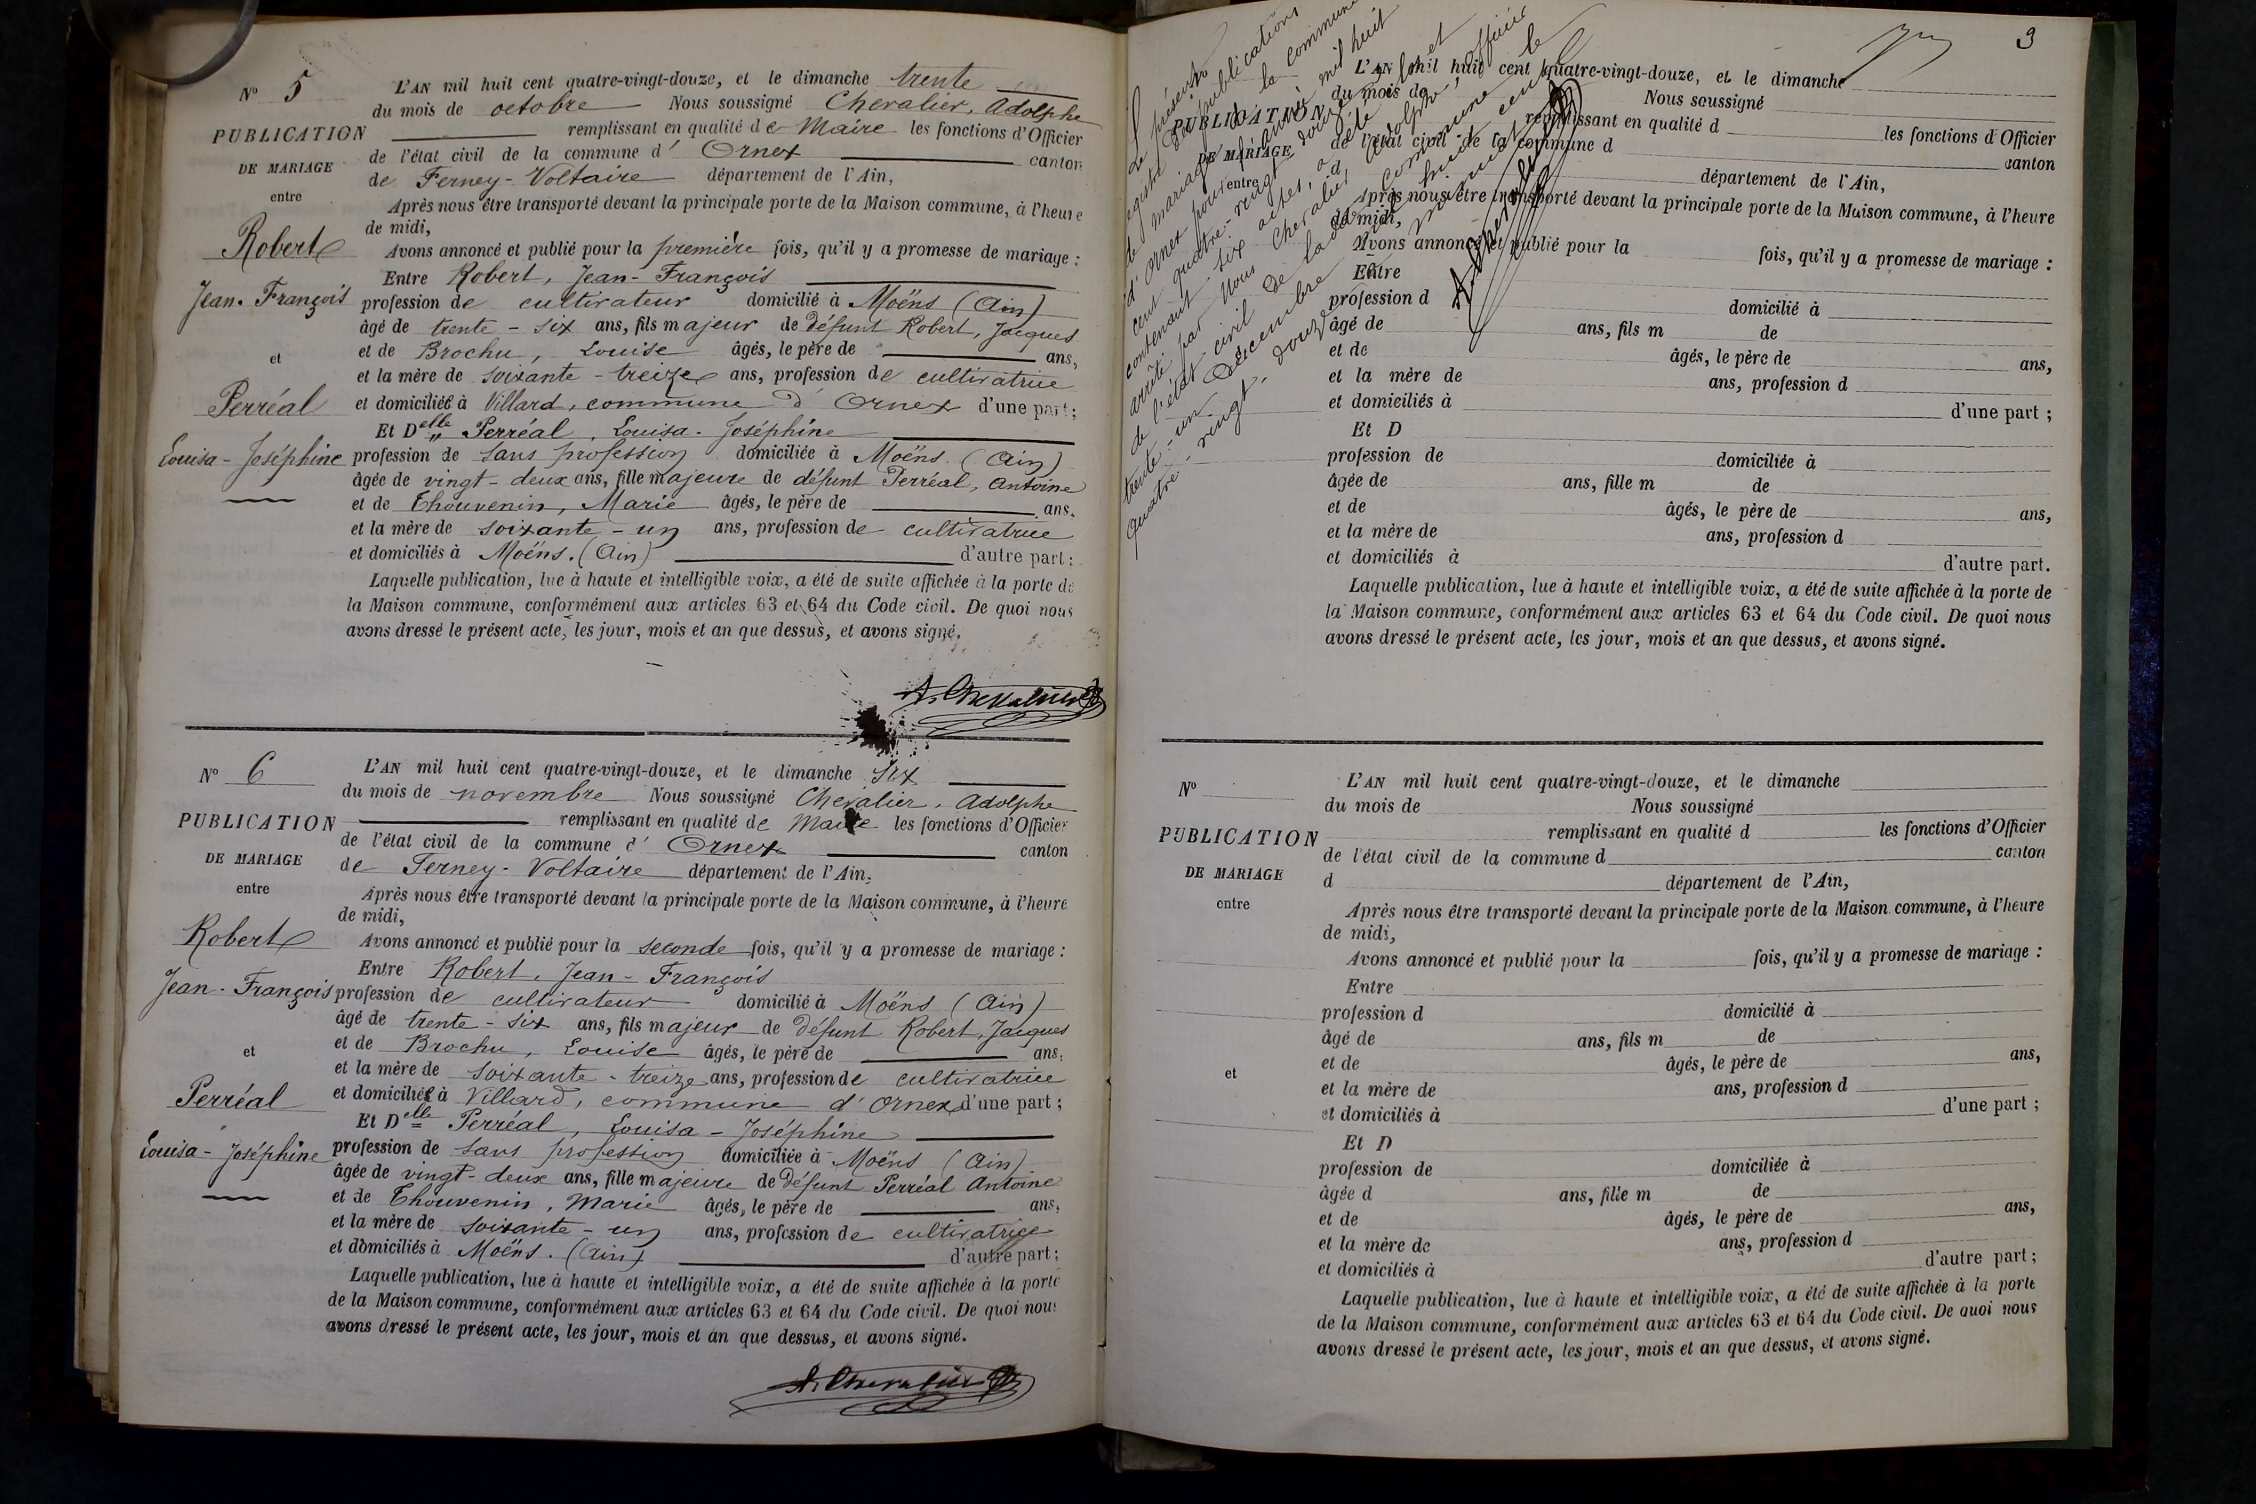 N° 5
PUBLICATION
DE MARIAGE
entre
Robert
Jean-François
et
Perréal
Louisa-Joséphine
L'AN mil huit cent quatre-vingt-douze, et le dimanche trente
du mois de octobre Nous soussigné Chevalier, Adolphe
remplissant en qualité de Maire les fonctions d'Officier
de l'état civil de la commune d' Ornex canton
de Ferney-Voltaire département de l'Ain,
Après nous être transporté devant la principale porte de la Maison commune, à l'heure
de midi,
Avons annoncé et publié pour la première fois, qu'il y a promesse de mariage :
Entre Robert, Jean-François
profession de cultivateur domicilié à Moëns (Ain)
âgé de trente-six ans, fils majeur de défunt Robert, Jacques
et de Brochu, Louise âgés, le père de ans,
et la mère de soixante-treize ans, profession de cultivatrice
et domiciliée à Villard, commune d'Ornex d'une part ;
Et Delle Perréal, Louisa-Joséphine
profession de sans profession domiciliée à Moëns (Ain)
âgée de vingt-deux ans, fille majeure de défunt Perréal, Antoine
et de Thouvenin, Marie âgés, le père de ans,
et la mère de soixante-un ans, profession de cultivatrice
et domiciliés à Moëns. (Ain) d'autre part ;
Laquelle publication, lue à haute et intelligible voix, a été de suite affichée à la porte de
la Maison commune, conformément aux articles 63 et 64 du Code civil. De quoi nous
avons dressé le présent acte, les jour, mois et an que dessus, et avons signé.
A. Chevalier
N° 6
PUBLICATION
DE MARIAGE
entre
Robert
Jean-François
et
Perréal
Louisa-Joséphine
L'AN mil huit cent quatre-vingt-douze, et le dimanche six
du mois de novembre Nous soussigné Chevalier, Adolphe
remplissant en qualité de Maire les fonctions d'Officier
de l'état civil de la commune d' Ornex canton
de Ferney-Voltaire département de l'Ain,
Après nous être transporté devant la principale porte de la Maison commune, à l'heure
de midi,
Avons annoncé et publié pour la seconde fois, qu'il y a promesse de mariage :
Entre Robert, Jean-François
profession de cultivateur domicilié à Moëns (Ain)
âgé de trente-six ans, fils majeur de défunt Robert, Jacques
et de Brochu, Louise âgés, le père de ans,
et la mère de soixante-treize ans, profession de cultivatrice
et domiciliée à Villard, commune d'Ornex d'une part ;
Et Delle Perréal, Louisa-Joséphine
profession de sans profession domiciliée à Moëns (Ain)
âgée de vingt-deux ans, fille majeure de défunt Perréal Antoine
et de Thouvenin, Marie âgés, le père de ans,
et la mère de soixante-un ans, profession de cultivatrice
et domiciliés à Moëns. (Ain) d'autre part ;
Laquelle publication, lue à haute et intelligible voix, a été de suite affichée à la porte
de la Maison commune, conformément aux articles 63 et 64 du Code civil. De quoi nous
avons dressé le présent acte, les jour, mois et an que dessus, et avons signé.
A. Chevalier
3
Le présent
registre de publications
de mariage de la commune
d'Ornex pour l'année mil huit
cent quatre-vingt-douze, et
contenant six actes, a été clos et
arrêté par Nous Chevalier, Adolphe, officier
de l'état civil de ladite commune le
trente-un Décembre mil huit cent
quatre-vingt-douze à minuit
A. Chevalier
PUBLICATION
DE MARIAGE
entre
L'AN mil huit cent quatre-vingt-douze, et le dimanche
du mois de Nous soussigné
remplissant en qualité d les fonctions d'Officier
de l'état civil de la commune d canton
d département de l'Ain,
Après nous être transporté devant la principale porte de la Maison commune, à l'heure
de midi,
Avons annoncé et publié pour la fois, qu'il y a promesse de mariage :
Entre
profession d domicilié à
âgé de ans, fils m de
et de âgés, le père de ans,
et la mère de ans, profession d
et domiciliés à d'une part ;
Et D
profession de domiciliée à
âgée de ans, fille m de
et de âgés, le père de ans,
et la mère de ans, profession d
et domiciliés à d'autre part.
Laquelle publication, lue à haute et intelligible voix, a été de suite affichée à la porte de
la Maison commune, conformément aux articles 63 et 64 du Code civil. De quoi nous
avons dressé le présent acte, les jour, mois et an que dessus, et avons signé.
N°
PUBLICATION
DE MARIAGE
entre
et
L'AN mil huit cent quatre-vingt-douze, et le dimanche
du mois de Nous soussigné
remplissant en qualité d les fonctions d'Officier
de l'état civil de la commune d canton
d département de l'Ain,
Après nous être transporté devant la principale porte de la Maison commune, à l'heure
de midi,
Avons annoncé et publié pour la fois, qu'il y a promesse de mariage :
Entre
profession d domicilié à
âgé de ans, fils m de
et de âgés, le père de ans,
et la mère de ans, profession d
et domiciliés à d'une part ;
Et D
profession de domiciliée à
âgée d ans, fille m de
et de âgés, le père de ans,
et la mère de ans, profession d
et domiciliés à d'autre part ;
Laquelle publication, lue à haute et intelligible voix, a été de suite affichée à la porte
de la Maison commune, conformément aux articles 63 et 64 du Code civil. De quoi nous
avons dressé le présent acte, les jour, mois et an que dessus, et avons signé.